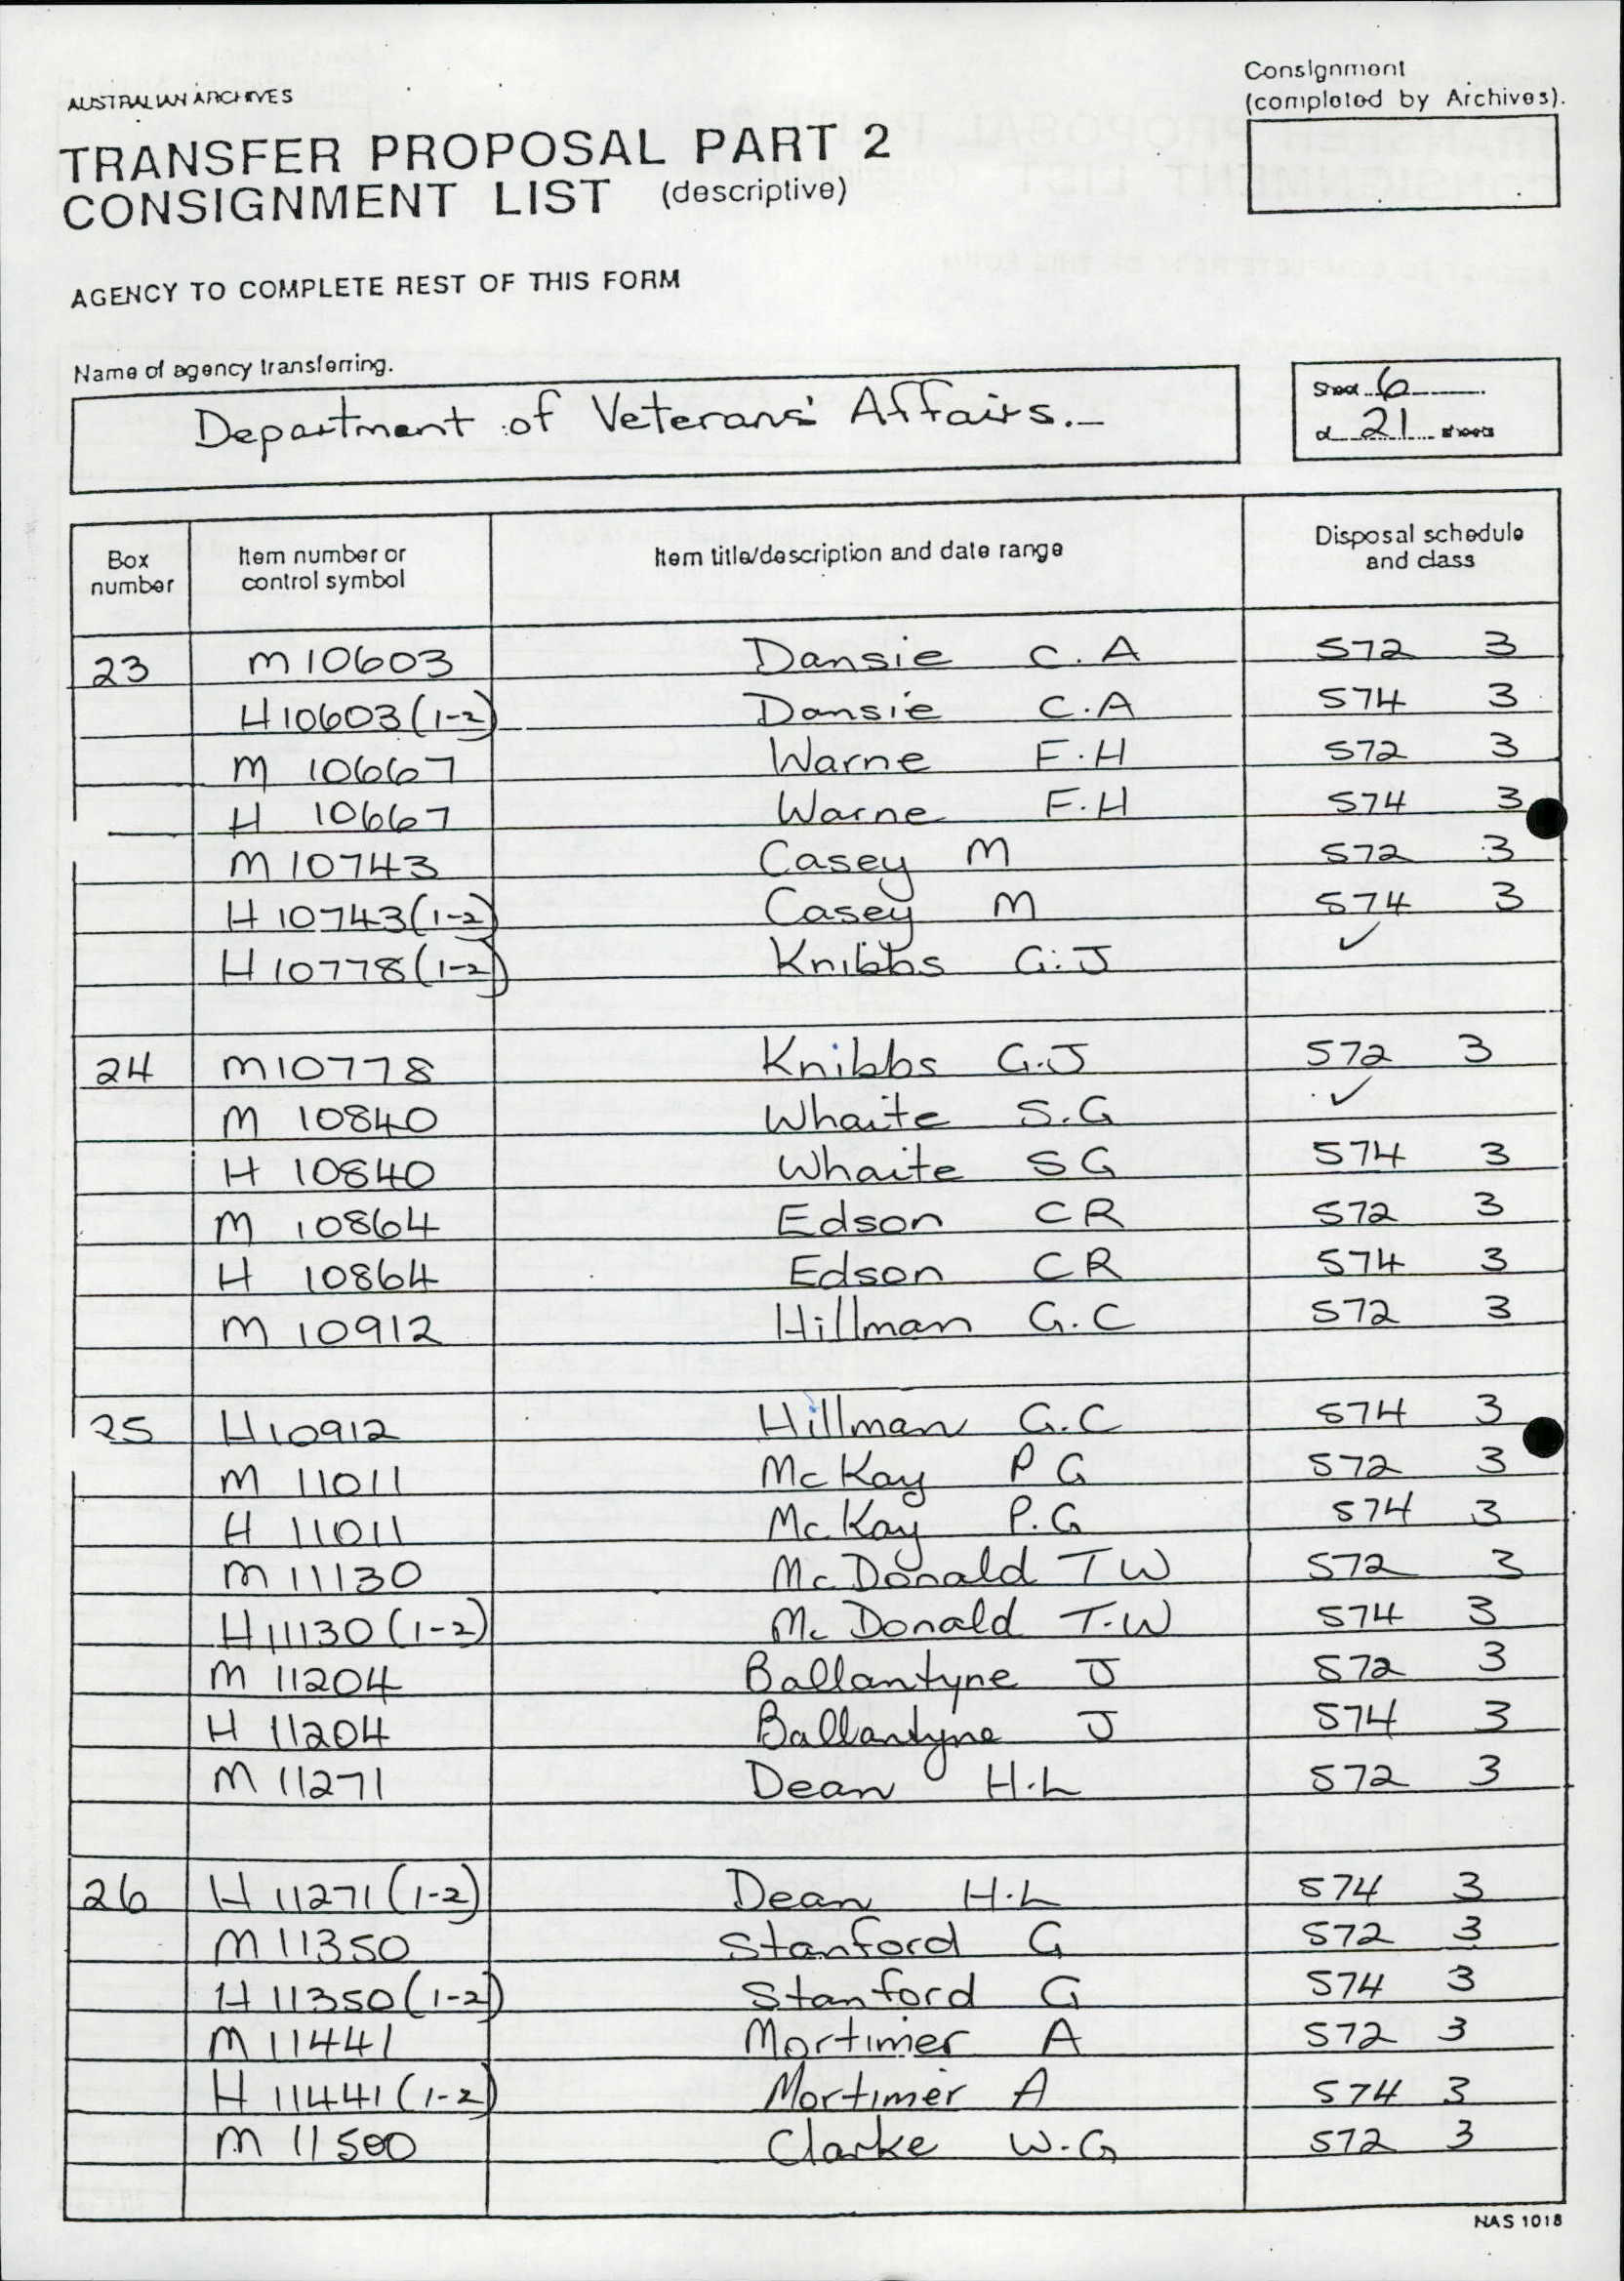 Consignment
(completed by Archives).
AUSTRALIAN ARCHIVES
TRANSFER PROPOSAL PART 2
CONSIGNMENT LIST (descriptive)
AGENCY TO COMPLETE REST OF THIS FORM
Name of agency transferring.
Department of Veterans' Affairs.-
Sheet 6
of 21 sheets
Box number Item number or control symbol Item title/description and date range Disposal schedule and class
23 M10603 Dansie C.A 572 3
H10603(1-2) Dansie C.A 574 3
M 10667 Warne F.H 572 3
H 10667 Warne F.H 574 3
M10743 Casey M 572 3
H10743(1-2) Casey M 574 3
H10778(1-2) Knibbs G.J ✓
24 M10778 Knibbs G.J 572 3
M 10840 Whaite S.G ✓
H 10840 Whaite SG 574 3
M 10864 Edson CR 572 3
H 10864 Edson CR 574 3
M 10912 Hillman G.C 572 3
25 H10912 Hillman G.C 574 3
M 11011 McKay P G 572 3
H 11011 McKay P.G 574 3
M11130 McDonald T W 572 3
H11130(1-2) McDonald T.W 574 3
M 11204 Ballantyne J 572 3
H 11204 Ballantyne J 574 3
M 11271 Dean H.L 572 3
26 H 11271(1-2) Dean H.L 574 3
M11350 Stanford G 572 3
H11350(1-2) Stanford G 574 3
M11441 Mortimer A 572 3
H 11441(1-2) Mortimer A 574 3
M 11500 Clarke W.G 572 3
NAS 1018